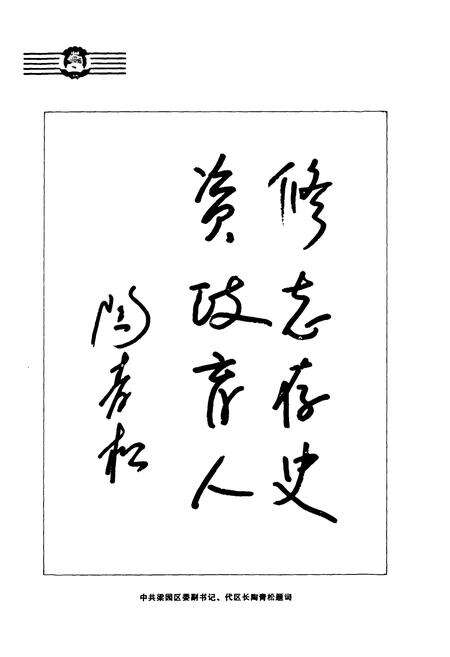 修志存史
资政育人
陶青松
中共梁园区委副书记、代区长陶青松题词